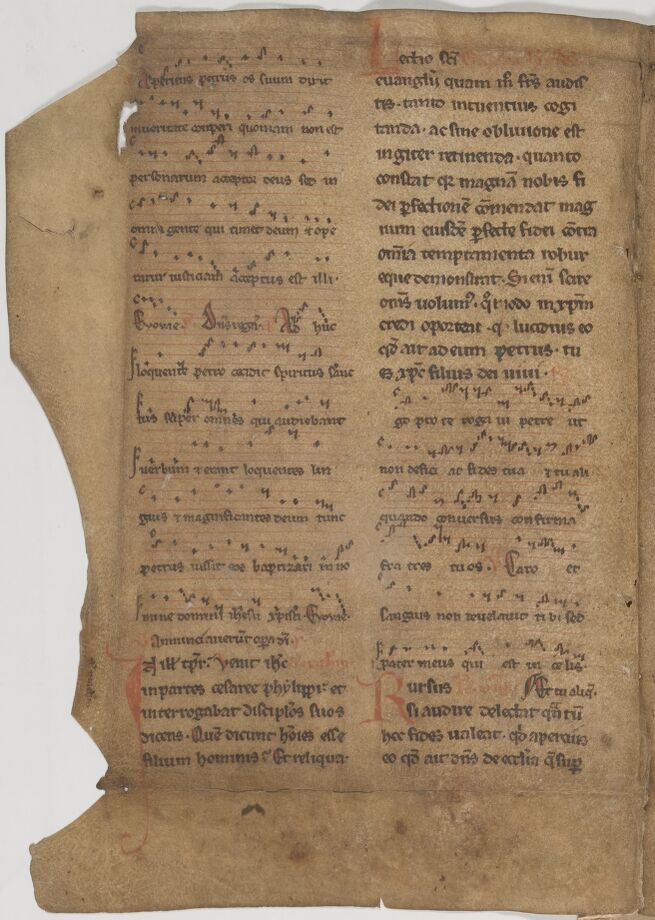 Aperiens petrus os suum dixit
in veritate comperi quoniam non est
personarum acceptor deus sed in
omni gente qui timet deum & ope
ratur iusticiam acceptus est illi.
Evovae. Ad huc
loquente petro cecidit spiritus sanc
tus super omnes qui audiebant
verbum & erant loquentes lin
guis & magnificantes deum tunc
petrus iussit eos baptizari in no
mine domini ihesu xpisti. Evovae.
Annunciaverunt opa di.
In ill tpr. Venit ihc
in partes cesaree phylippi et
interrogabat disciplos suos
dicens. Que dicunt hoies esse
filium hominis? Et reliqua.
Lectio sci
euanglii quam m frs audis
tis. tanto intentius cogi
tanda. ac sine obliuione est
iugiter retinenda. quanto
constat qr magna nobis fi
dei pfectione comendat mag
num eiusde pfecte fidei cotra
omia temptamenta robur
eque demonstrat. Si eni scire
oms volum9. qmodo in xpm
credi oporteat. q lucidius eo
qd ait ad eum petrus. tu
es xpc filius dei uiui.
go pro te rogaui petre ut
non defici at fides tua & tu ali
quando conversus confirma
fra tres tuos. Caro et
sanguis non revelavit tibi sed
pater meus qui est in celis.
Rursus Et tu aliq.
si audire delectat qta tu
hec fides ualeat. qd aperauis
eo qd ait dns de ecclia q sup